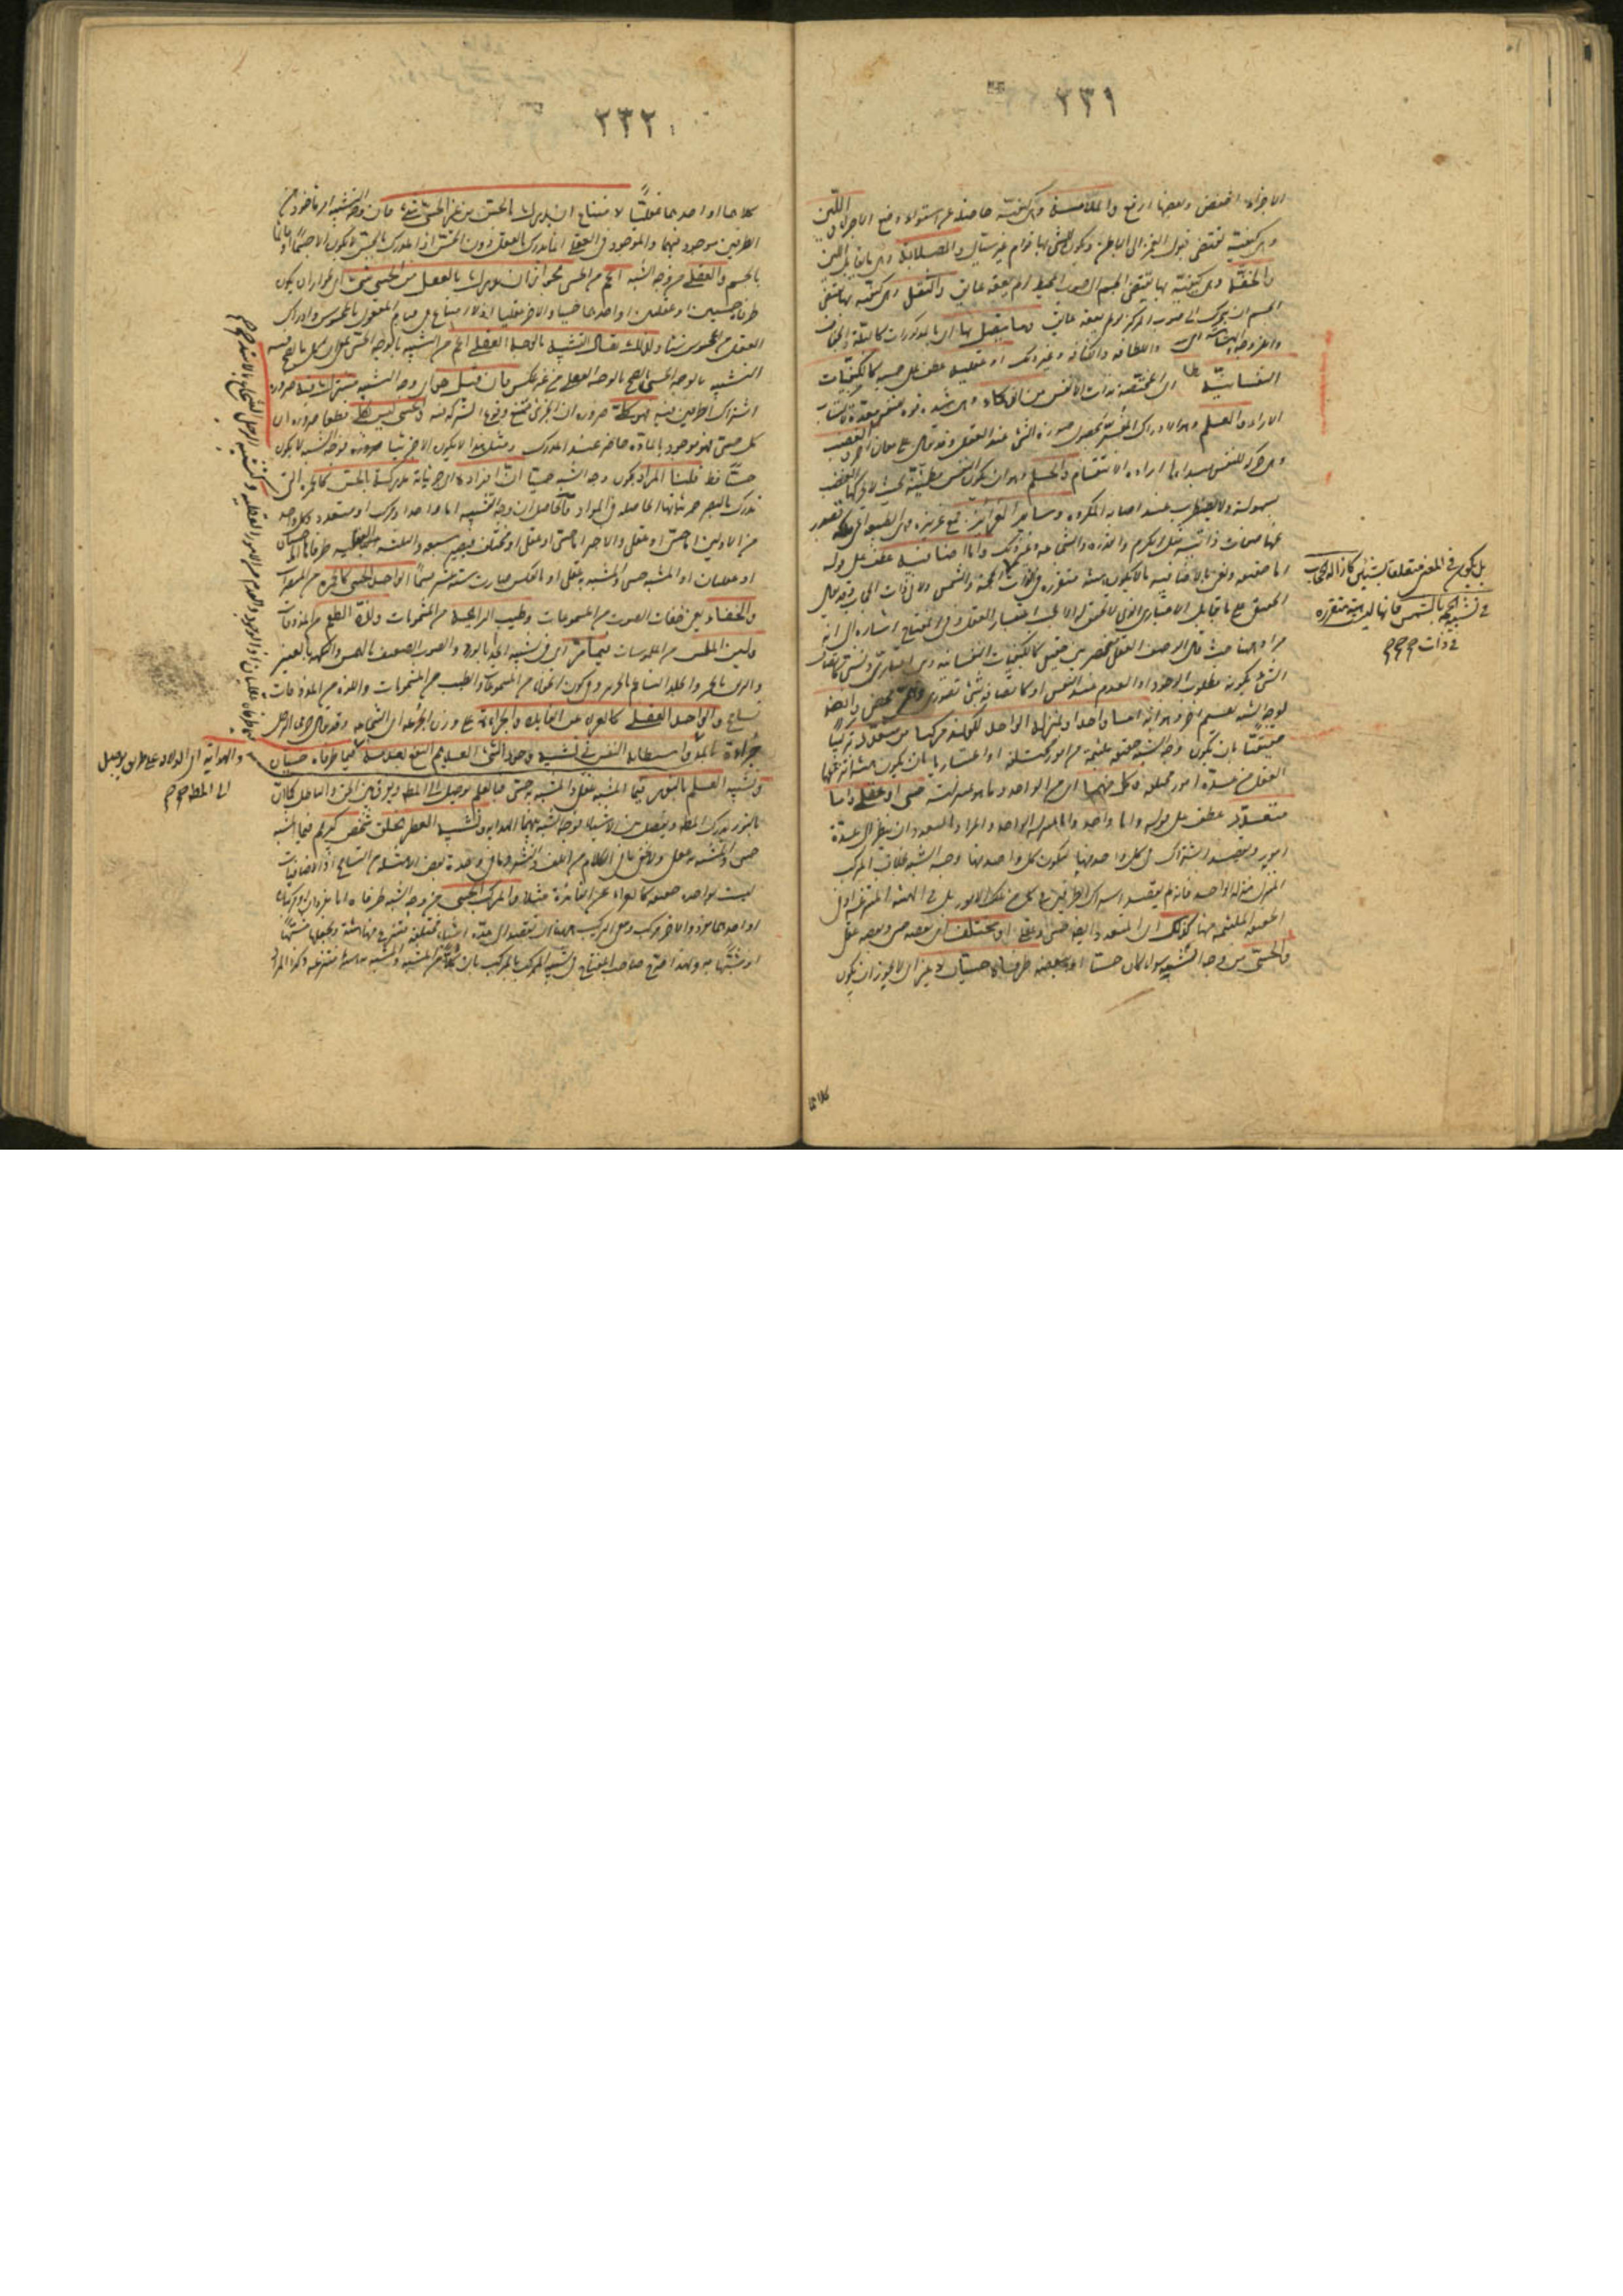 ٢٣١
الاجزاء اخفض وبعضها ارفع والملاسة وهى كيفية حاصلة عن استواء وضع الاجزاء واللين
وهى كيفية تقتضى قبول الغمز الى الباطن ويكون للشئ بها قوام غير سيال والصلابة وهى تقابل اللين
والخفة وهى كيفية بها يقتضى الجسم ان يتحرك الى صوب المحيط لو لم يعقه عائق والثقل وهى كيفية بها يقتضى
الجسم ان يتحرك الى صوب المركز لو لم يعقه عائق وما يتصل بها اى بالمذكورات كالبلة والجفاف
واللزوجة والهشاشة واللطافة والكثافة وغير ذلك او عقلية عطف على حسية كالكيفيات
النفسانية اى المختصة بذوات الانفس من الذكاء وهى شدة قوة للنفس معدة لاكتساب
الاراء والعلم وهو الادراك المفسر بحصول صورة الشئ عند العقل وقد يقال على معان اخر والغضب
وهى حركة للنفس مبدأها ارادة الانتقام والحلم وهو ان يكون النفس مطمئنة بحيث لا يحركها الغضب
بسهولة ولا يضطرب عند اصابة المكروه وسائر الغرائز جمع غريزة وهى الطبيعة اعنى ملكة تصدر
عنها صفات ذاتية مثل الكرم والقدرة والشجاعة وغير ذلك واما اضافية عطف على قوله
اما حقيقية ونعنى بالاضافية ما لا يكون هيئة متقررة فى الذات
بل يكون معنى متعلقا بشيئين كازالة الحجاب
فى تشبيه الحجة بالشمس فانها ليست هيئة متقررة
فى ذات
الحجة والشمس ولا فى ذات الحجاب وقد يقال
الحقيقى على ما يقابل الاعتبارى الذى لا تحقق له الا بحسب اعتبار العقل وفى المفتاح اشارة الى انه
مراد ههنا حيث قال الوصف العقلى منحصر بين حقيقى كالكيفيات النفسانية وبين اعتبارى ونسبى كاتصاف
الشئ بكونه مطلوب الوجود او العدم عند النفس او كاتصافه بشئ تصورى وهمى محض وايضا
لوجه الشبه تقسيم اخر وهو انه اما واحد او بمنزلة الواحد لكونه مركبا من متعدد تركيبا
حقيقيا بان يكون وجه الشبه حقيقة ملتئمة من امور مختلفة او اعتباريا بان يكون هيئة انتزعها
العقل من عدة امور وكل منهما اى من الواحد وما هو بمنزلته حسى او عقلى واما
متعدد عطف على قوله واما واحد واما بمنزلة الواحد والمراد بالمتعدد ان ينظر الى عدة
امور ويقصد اشتراك الطرفين فى كل واحد منها ليكون كل واحد منها وجه الشبه بخلاف المركب
المنزل منزلة الواحد فانه لم يقصد اشتراك الطرفين فى كل من تلك الامور بل فى الهيئة المنتزعة او فى
الحقيقة الملتئمة منها كذلك اى المتعدد ايضا حسى او عقلى او مختلف اى بعضه حسى وبعضه عقلى
والحسى من وجه الشبه سواء كان حسيا او ببعضه طرفاه حسيان لا غير اى لا يجوز ان يكون
كلاهما
٢٣٢
كلاهما او احدهما عقليا لامتناع ان يدرك بالحس من غير الحسى شئ فان وجه الشبه امر مأخوذ من
الطرفين موجود فيهما والموجود فى العقلى انما يدرك بالعقل دون الحس اذ المدرك بالحس لا يكون الا جسما او قائما
بالجسم والعقلى من وجه الشبه اعم من الحسى لجواز ان يدرك بالعقل من الحسى شئ اى يجوز ان يكون
طرفاه حسيين او عقليين او احدهما حسيا والاخر عقليا اذ لا امتناع فى قيام المعقول بالمحسوس وادراك
العقل من المحسوس شيئا ولذلك يقال التشبيه بالوجه العقلى اعم من التشبيه بالوجه الحسى بمعنى ان كل ما يصح فيه
التشبيه بالوجه الحسى يصح بالوجه العقلى من غير عكس فان قيل هو اى وجه الشبه مشترك فيه ضرورة
اشتراك الطرفين فيه فهو كلى ضرورة ان الجزئى يمتنع وقوع الشركة فيه والحسى ليس بكلى قطعا ضرورة ان
كل حسى فهو موجود بالمادة حاضر عند المدرك ومثل هذا لا يكون الا جزئيا ضرورة فوجه الشبه لا يكون
حسيا قط قلنا المراد بكون وجه الشبه حسيا ان افراده اى جزئياته مدركة بالحس كالحمرة التى
تدرك بالبصر جزئياتها الحاصلة فى المواد فالحاصل ان وجه التشبيه اما واحد او مركب او متعدد وكل واحد
من الاولين اما حسى او عقلى والاخير اما حسى او عقلى او مختلف فيصير سبعة والثلثة العقلية طرفاها اما حسيان
او عقليان او المشبه حسى والمشبه به عقلى او بالعكس صارت ستة عشر قسما الواحد الحسى كالحمرة من المبصرات
والخفاء يعنى خفاء الصوت من المسموعات وطيب الرائحة من المشمومات ولذة الطعم من المذوقات
ولين الملمس من الملموسات فيما مر اى فى تشبيه الخد بالورد والصوت الضعيف بالهمس والنكهة بالعنبر
والريق بالخمر والجلد الناعم بالحرير وفى كون الخفاء من المسموعات والطيب من المشمومات واللذة من المذوقات
تسامح والواحد العقلى كالعراء عن الفائدة والجرأة على وزن الجرعة اى الشجاعة وقد يقال جرؤ الرجل
جراءة بالمد
والهداية اى الدلالة على طريق يوصل
الى المطلوب
واستطابة النفس فى تشبيه وجود الشئ العديم النفع بعدمه فيما طرفاه عقليان اذ الوجود والعدم من الامور العقلية وتشبيه الرجل الشجاع بالاسد
فيما طرفاه حسيان
وتشبيه العلم بالنور فيما المشبه عقلى والمشبه به حسى فبالعلم يوصل الى المطلوب ويفرق بين الحق والباطل كما ان
بالنور يدرك المطلوب ويفصل بين الاشياء فوجه الشبه بينهما الهداية وتشبيه العطر بخلق شخص كريم فيما المشبه
حسى والمشبه به عقلى ولا يخفى ما فى الكلام من اللف والنشر وما فى وحدة بعض الامثلة من التسامح
ليست بواحد حقيقة كالعراء عن الفائدة مثلا والمركب الحسى من وجه الشبه طرفاه اما مفردان او مركبان
او احدهما مفرد والاخر مركب ومعنى التركيب ههنا ان تقصد الى عدة اشياء مختلفة فتنتزع منها هيئة وتجعلها مشبها
او مشبها به ولهذا صرح صاحب المفتاح فى تشبيه المركب بالمركب بان كلا من المشبه والمشبه به هيئة منتزعة وكذا المراد